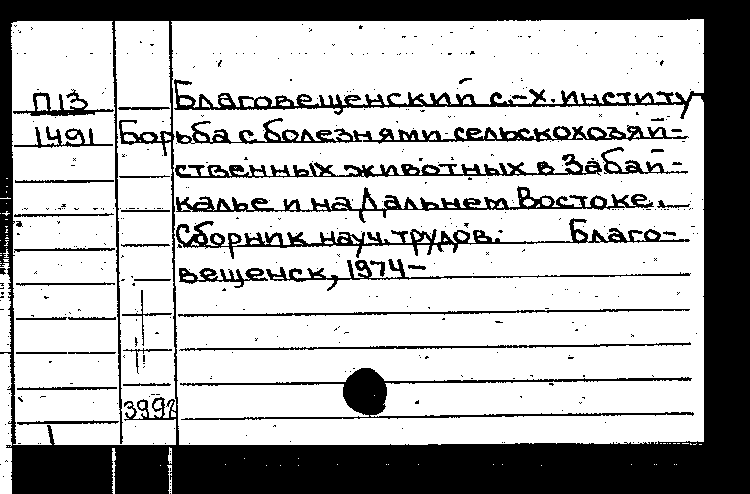 П13 Благовещенский с.-х. институт
1491 Борьба с болезнями сельскохозяй-
ственных животных в Забай-
калье и на Дальнем Востоке.
Сборник науч. трудов. Благо-
вещенск, 1974-
3992